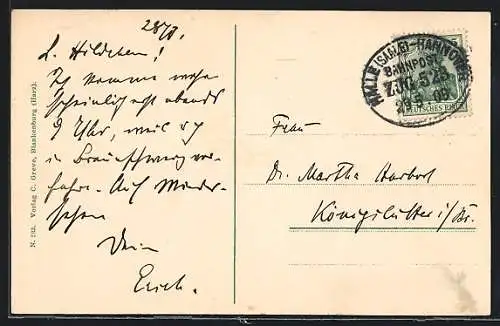 28/8.
L. Hildchen!
Ich komme wahr-
scheinlich erst abends
9 Uhr, weil ich
in Braunschweig vor-
fahre. Auf Wieder-
sehen
Dein
Erich.
N. 245. Verlag C. Greve, Blankenburg (Harz).
HALLE (SAALE)-HANNOVER
BAHNPOST
ZUG 523
DEUTSCHES REICH
Frau
Dr. Martha Harbort
Königslutter i/Br.